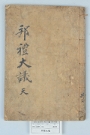 邦禮大議 天